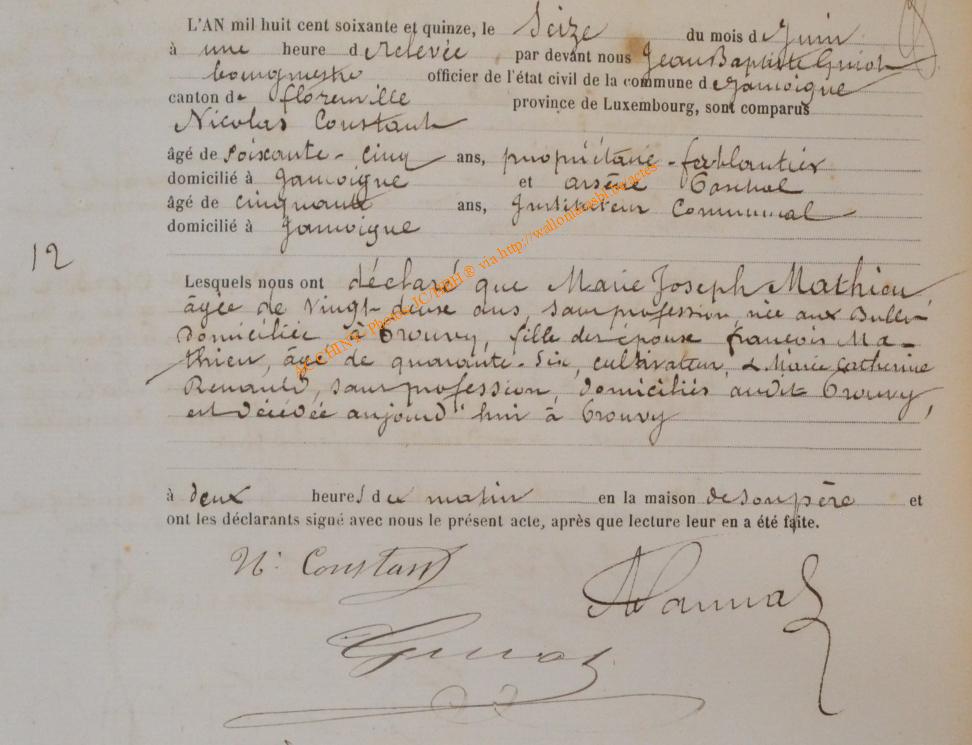 L'AN mil huit cent soixante et quinze, le Seize du mois de Juin
à une heure de relevée par devant nous Jean Baptiste Guiot
bourgmestre officier de l'état civil de la commune de Jamoigne
canton de florenville province de Luxembourg, sont comparus
Nicolas Constant
âgé de soixante-cinq ans, propriétaire-ferblantier
domicilié à Jamoigne et arsène
âgé de cinquante ans, Instituteur Communal
domicilié à Jamoigne
12
Lesquels nous ont déclaré que Marie Joseph Mathieu
âgée de vingt-deux ans, sans profession née aux Bulles
domiciliée à Prouvy, fille des époux françois Ma-
thieu, âgé de quarante-six, cultivateur, & Marie Catherine
Renauld, sans profession, domiciliés audit Prouvy,
est décédée aujourd'hui à Prouvy
à deux heures du matin en la maison de son père et
ont les déclarants signé avec nous le présent acte, après que lecture leur en a été faite.
N. Constant
Guiot
ACCHINT - Photos IC/HBH® via http://walloniaasbl.be/actes